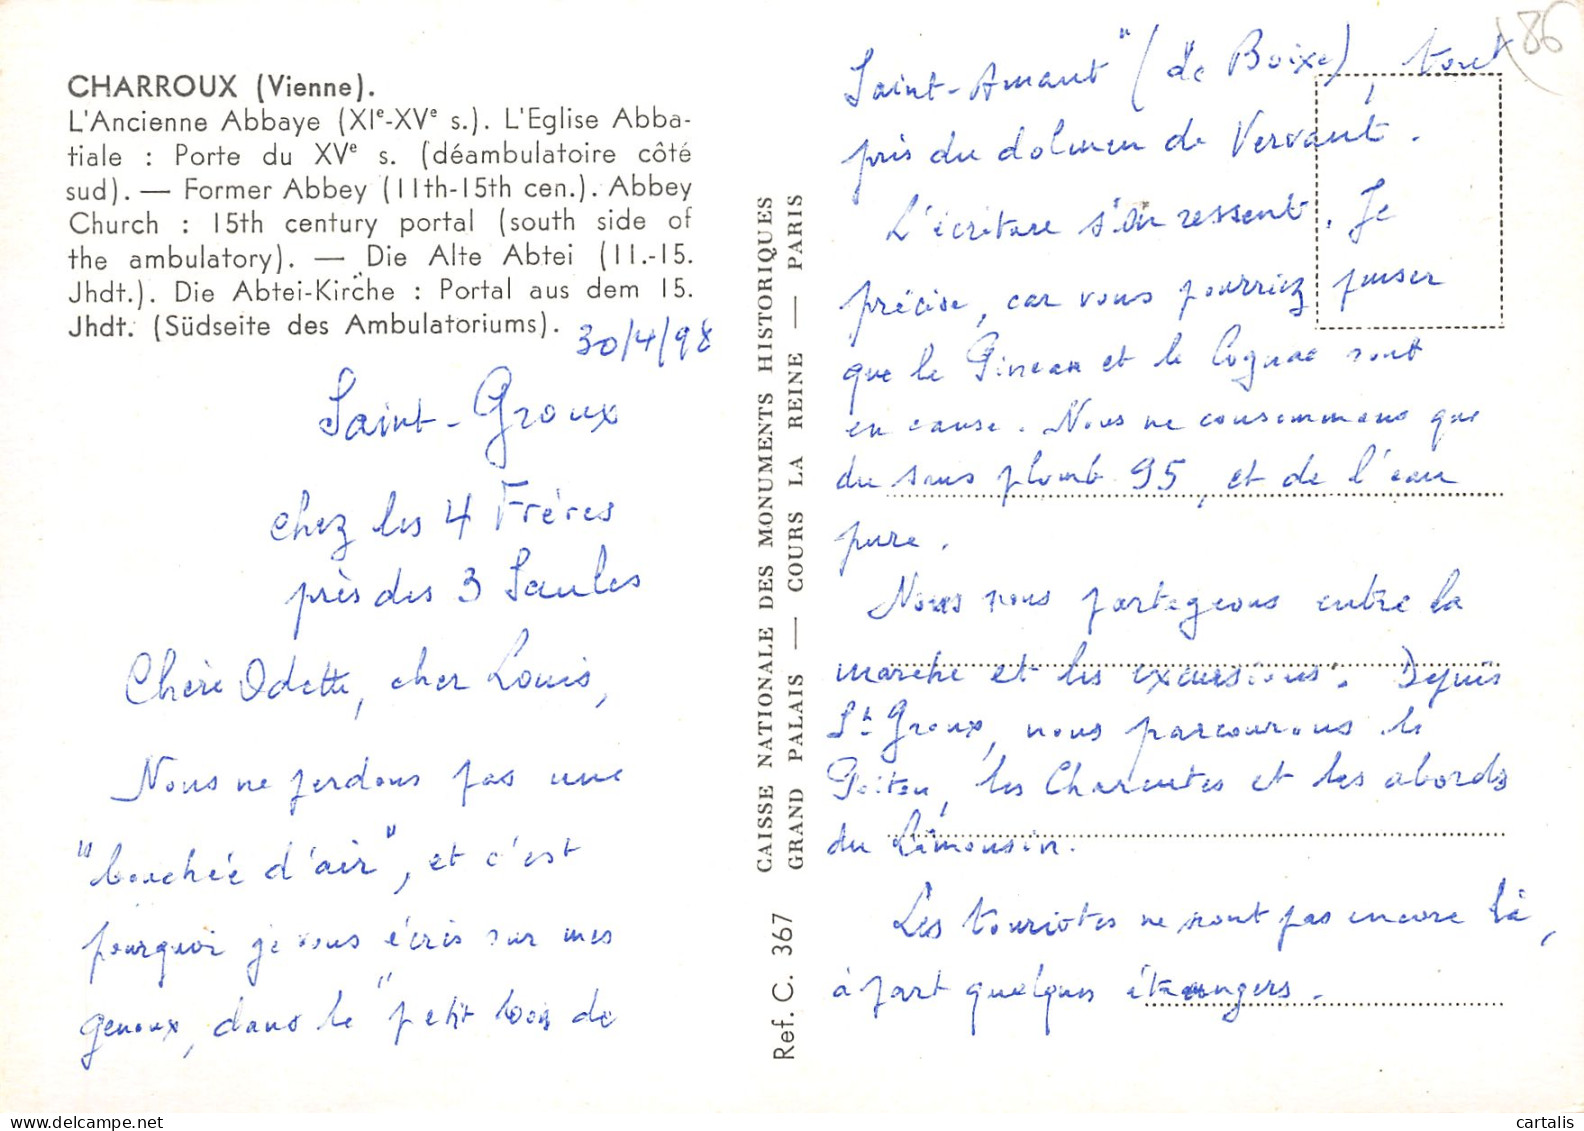 CHARROUX (Vienne).
L'Ancienne Abbaye (XIe-XVe s.). L'Eglise Abba-
tiale : Porte du XVe s. (déambulatoire côté
sud). — Former Abbey (11th-15th cen.). Abbey
Church : 15th century portal (south side of
the ambulatory). — Die Alte Abtei (11.-15.
Jhdt.). Die Abtei-Kirche : Portal aus dem 15.
Jhdt. (Südseite des Ambulatoriums).
30/4/98
Saint-Groux
chez les 4 Frères
près des 3 Saules
Chère Odette, cher Louis,
Nous ne perdons pas une
"bouchée d'air", et c'est
pourquoi je vous écris sur mes
genoux, dans le "petit bois de
CAISSE NATIONALE DES MONUMENTS HISTORIQUES
GRAND PALAIS — COURS LA REINE — PARIS
Ref. C. 367
86
Saint-Amant" (de Boixe), tout
près du dolmen de Vervant.
L'écriture s'en ressent. Je
précise, car vous pourriez penser
que le Pineau et le Cognac sont
en cause. Nous ne consommons que
du sans plomb 95, et de l'eau
pure.
Nous nous partageons entre la
marche et les excursions. Depuis
St Groux, nous parcourons le
Poitou, les Charentes et les abords
du Limousin.
Les touristes ne sont pas encore là,
à part quelques étrangers.
cartalis